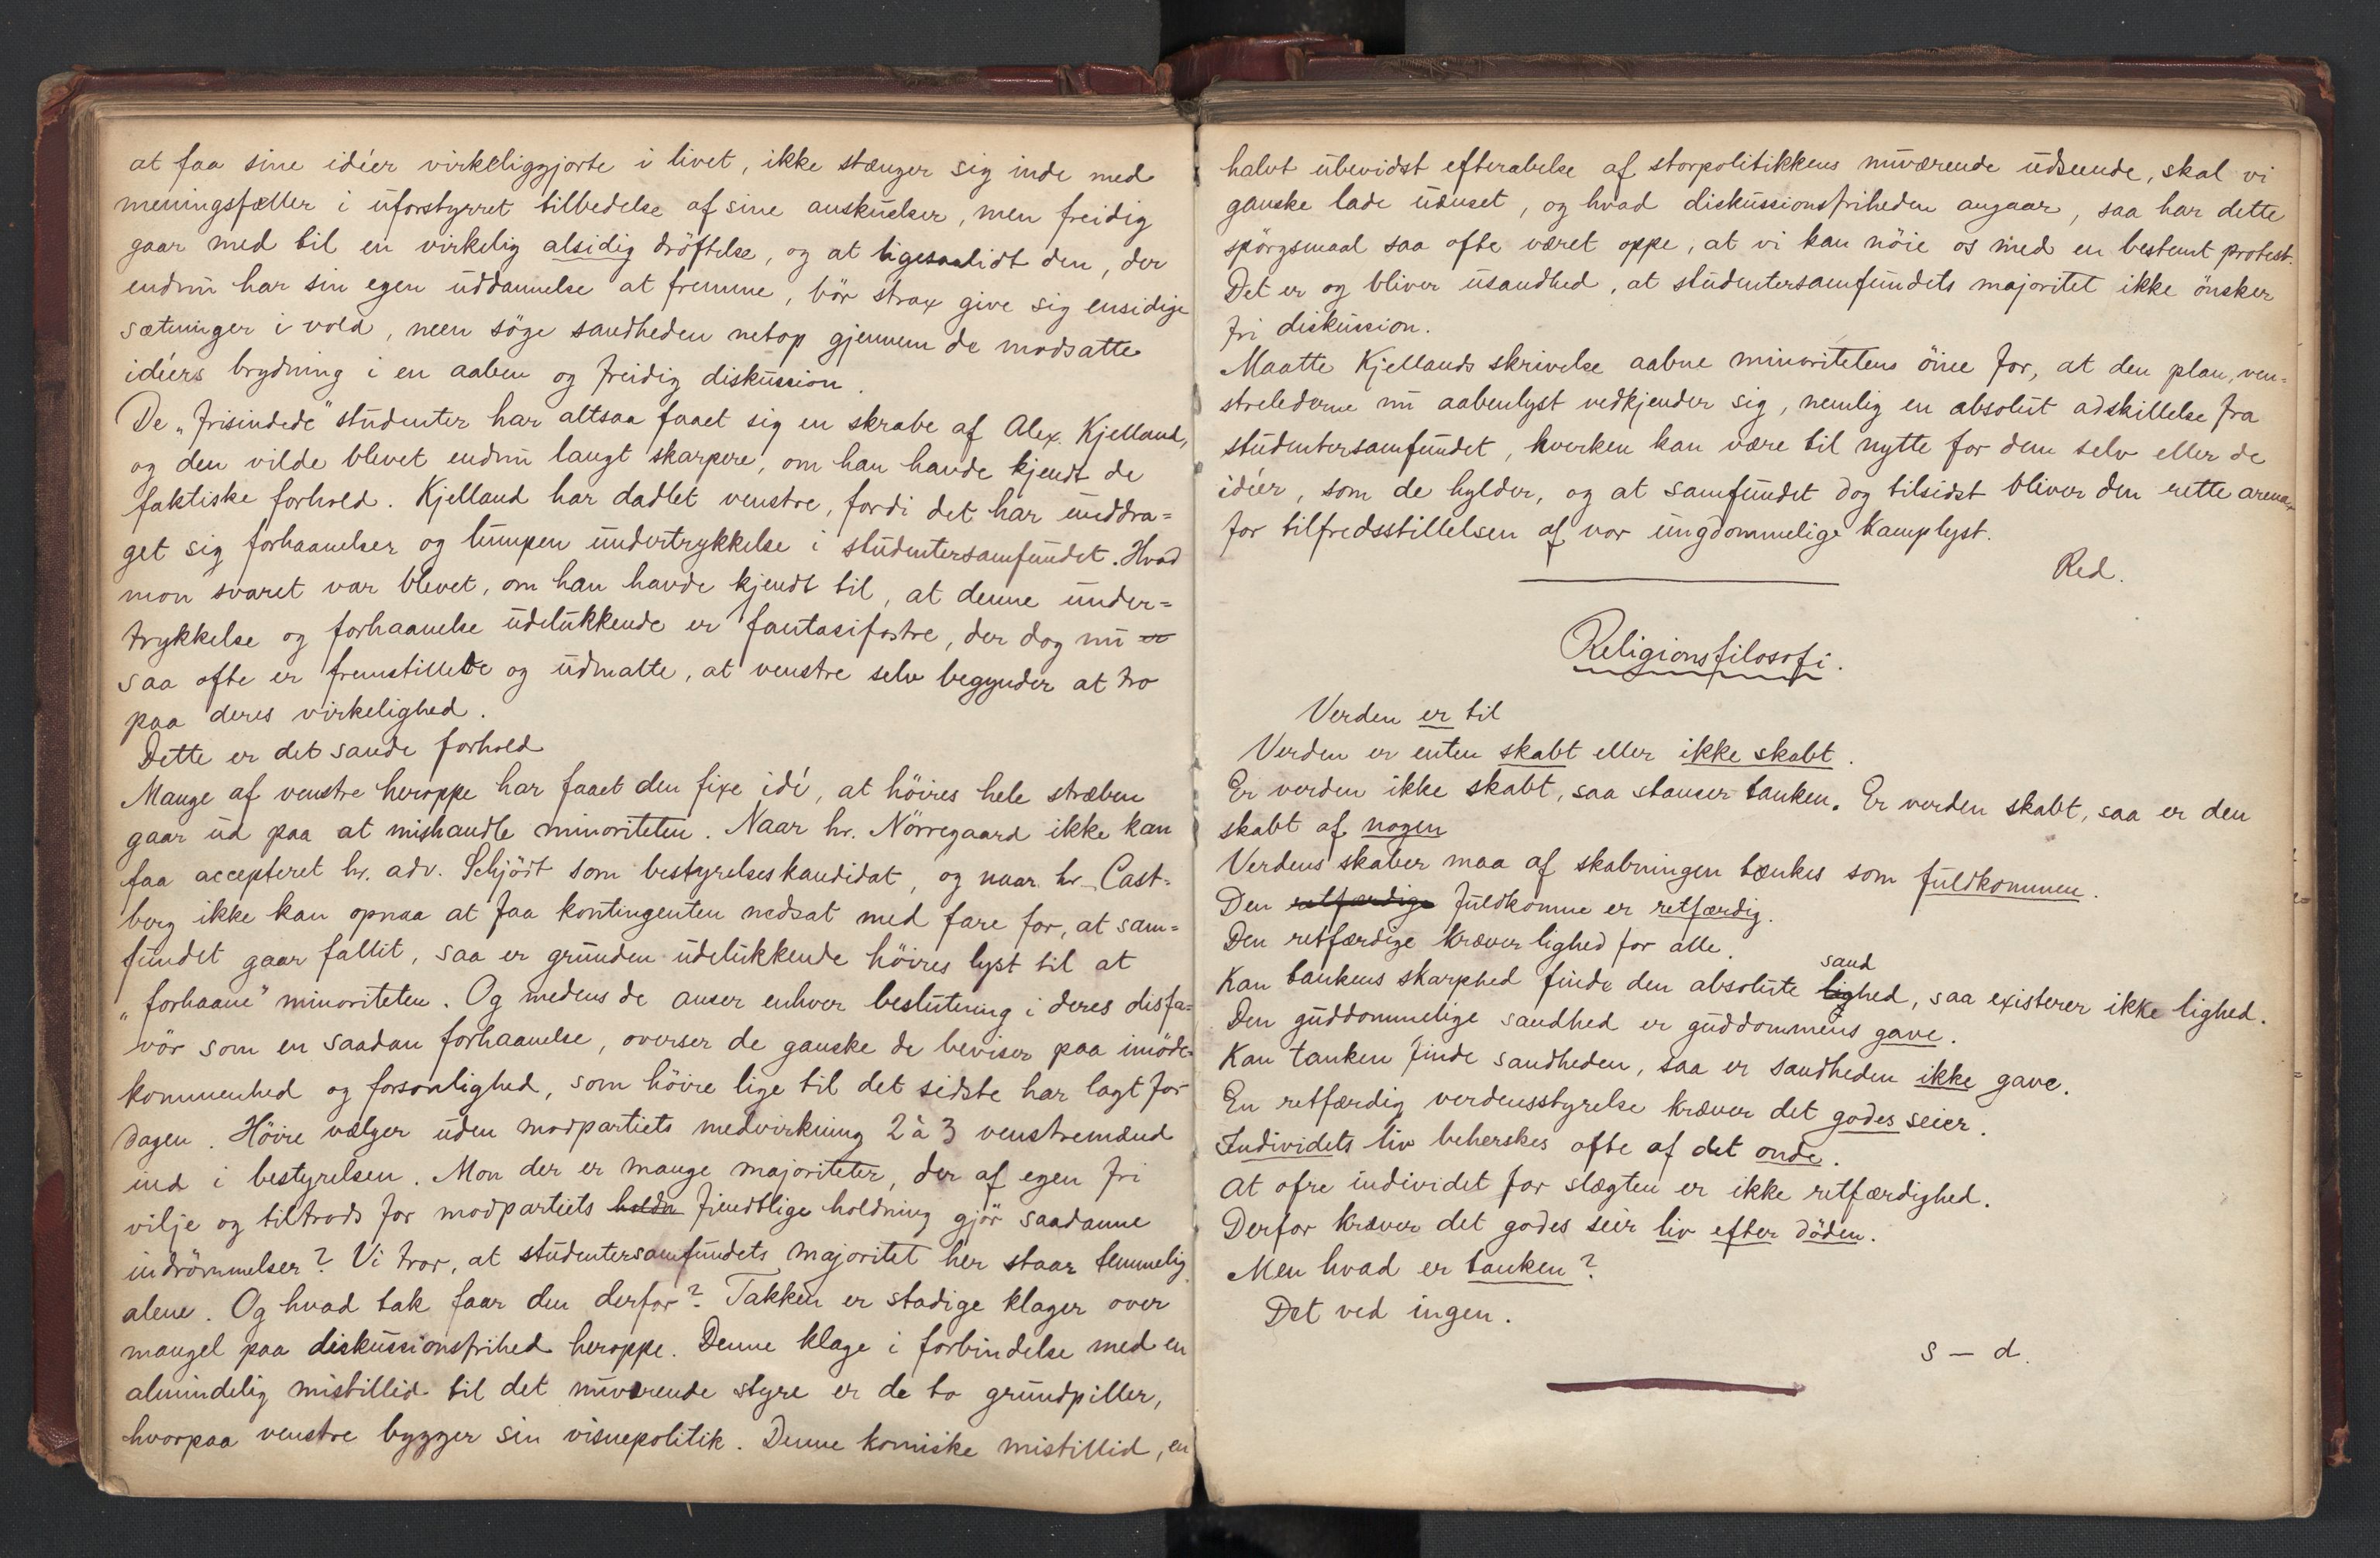 at faa sine idéer virkeliggjorte i livet, ikke stænger sig inde med
meningsfæller i uforstyrret tilbedelse af sine anskuelser, men freidig
gaar med til en virkelig alsidig dröftelse, og at ligesaalidt den, der
endnu har sin egen uddannelse at fremme, bör strax give sig ensidige
sætninger i vold, men söge sandheden netop gjennem de modsatte
idéers brydning i en aaben og freidig diskussion.
De „frisindede" studenter har altsaa faaet sig en skrabe af Alex. Kjelland,
og den vilde blevet endnu langt skarpere, om han havde kjendt de
faktiske forhold. Kjelland har dadlet venstre, fordi det har unddra=
get sig forhaanelser og lumpen undertrykkelse i studentersamfundet. Hvad
mon svaret var blevet, om han havde kjendt til, at denne under=
trykkelse og forhaanelse udelukkende er fantasifostre, der dog nu er
saa ofte er fremstillede og udmalte, at venstre selv begynder at tro
paa deres virkelighed.
Dette er det sande forhold
Mange af venstre heroppe har faaet den fixe idé, at höires hele stræben
gaar ud paa at mishandle minoriteten. Naar hr. Nörregaard ikke kan
faa accepteret hr. adv. Schjödt som bestyrelseskandidat, og naar hr. Cast=
berg ikke kan opnaa at faa kontingenten nedsat med fare for, at sam=
fundet gaar fallit, saa er grunden udelukkende höires lyst til at
„forhaane" minoriteten. Og medens de anser enhver beslutning i deres disfa=
vör som en saadan forhaanelse, overser de ganske de beviser paa imöde=
kommenhed og forsonlighed, som höire lige til det sidste har lagt for
dagen. Höire vælger uden modpartiets medvirkning 2 à 3 venstremænd
ind i bestyrelsen. Mon der er mange majoriteter, der af egen fri
vilje og tiltrods for modpartiets holdn fiendtlige holdning gjör saadanne
indrömmelser? Vi tror, at studentersamfundets majoritet her staar temmelig
alene. Og hvad tak faar den derfor? Takken er stadige klager over
mangel paa diskussionsfrihed heroppe. Denne klage i forbindelse med en
almindelig mistillid til det nuværende styre er de to grundpiller,
hvorpaa venstre bygger sin visnepolitik. Denne komiske mistillid, en
halvt ubevidst efterabelse af storpolitikkens nuværende udseende, skal vi
ganske lade uænset, og hvad diskussionsfriheden angaar, saa har dette
spörgsmaal saa ofte været oppe, at vi kan nöie os med en bestemt protest.
Det er og bliver usandhed, at studentersamfundets majoritet ikke önsker
fri diskussion.
Maatte Kjellands skrivelse aabne minoritetens öine for, at den plan, ven=
strelederne nu aabenlyst vedkjender sig, nemlig en absolut adskillelse fra
studentersamfundet, hverken kan være til nytte for dem selv eller de
idéer, som de hylder, og at samfundet dog tilsidst bliver den rette arena
for tilfredsstillelsen af vor ungdommelige kamplyst.
Red.
Religionsfilosofi.
Verden er til
Verden er enten skabt eller ikke skabt.
Er verden ikke skabt, saa stanser tanken. Er verden skabt, saa er den
skabt af nogen
Verdens skaber maa af skabningen tænkes som fuldkommen.
Den retfærdige fuldkomne er retfærdig.
Den retfærdige kræver lighed for alle.
sand
Kan tankens skarphed finde den absolute lighed, saa existerer ikke lighed.
Den guddommelige sandhed er guddommens gave.
Kan tanken finde sandheden, saa er sandheden ikke gave.
En retfærdig verdensstyrelse kræver det godes seier.
Individets liv beherskes ofte af det onde.
At ofre individet for slægten er ikke retfærdighed.
Derfor kræver det godes seir liv efter döden.
Men hvad er tanken?
Det ved ingen.
s – d.